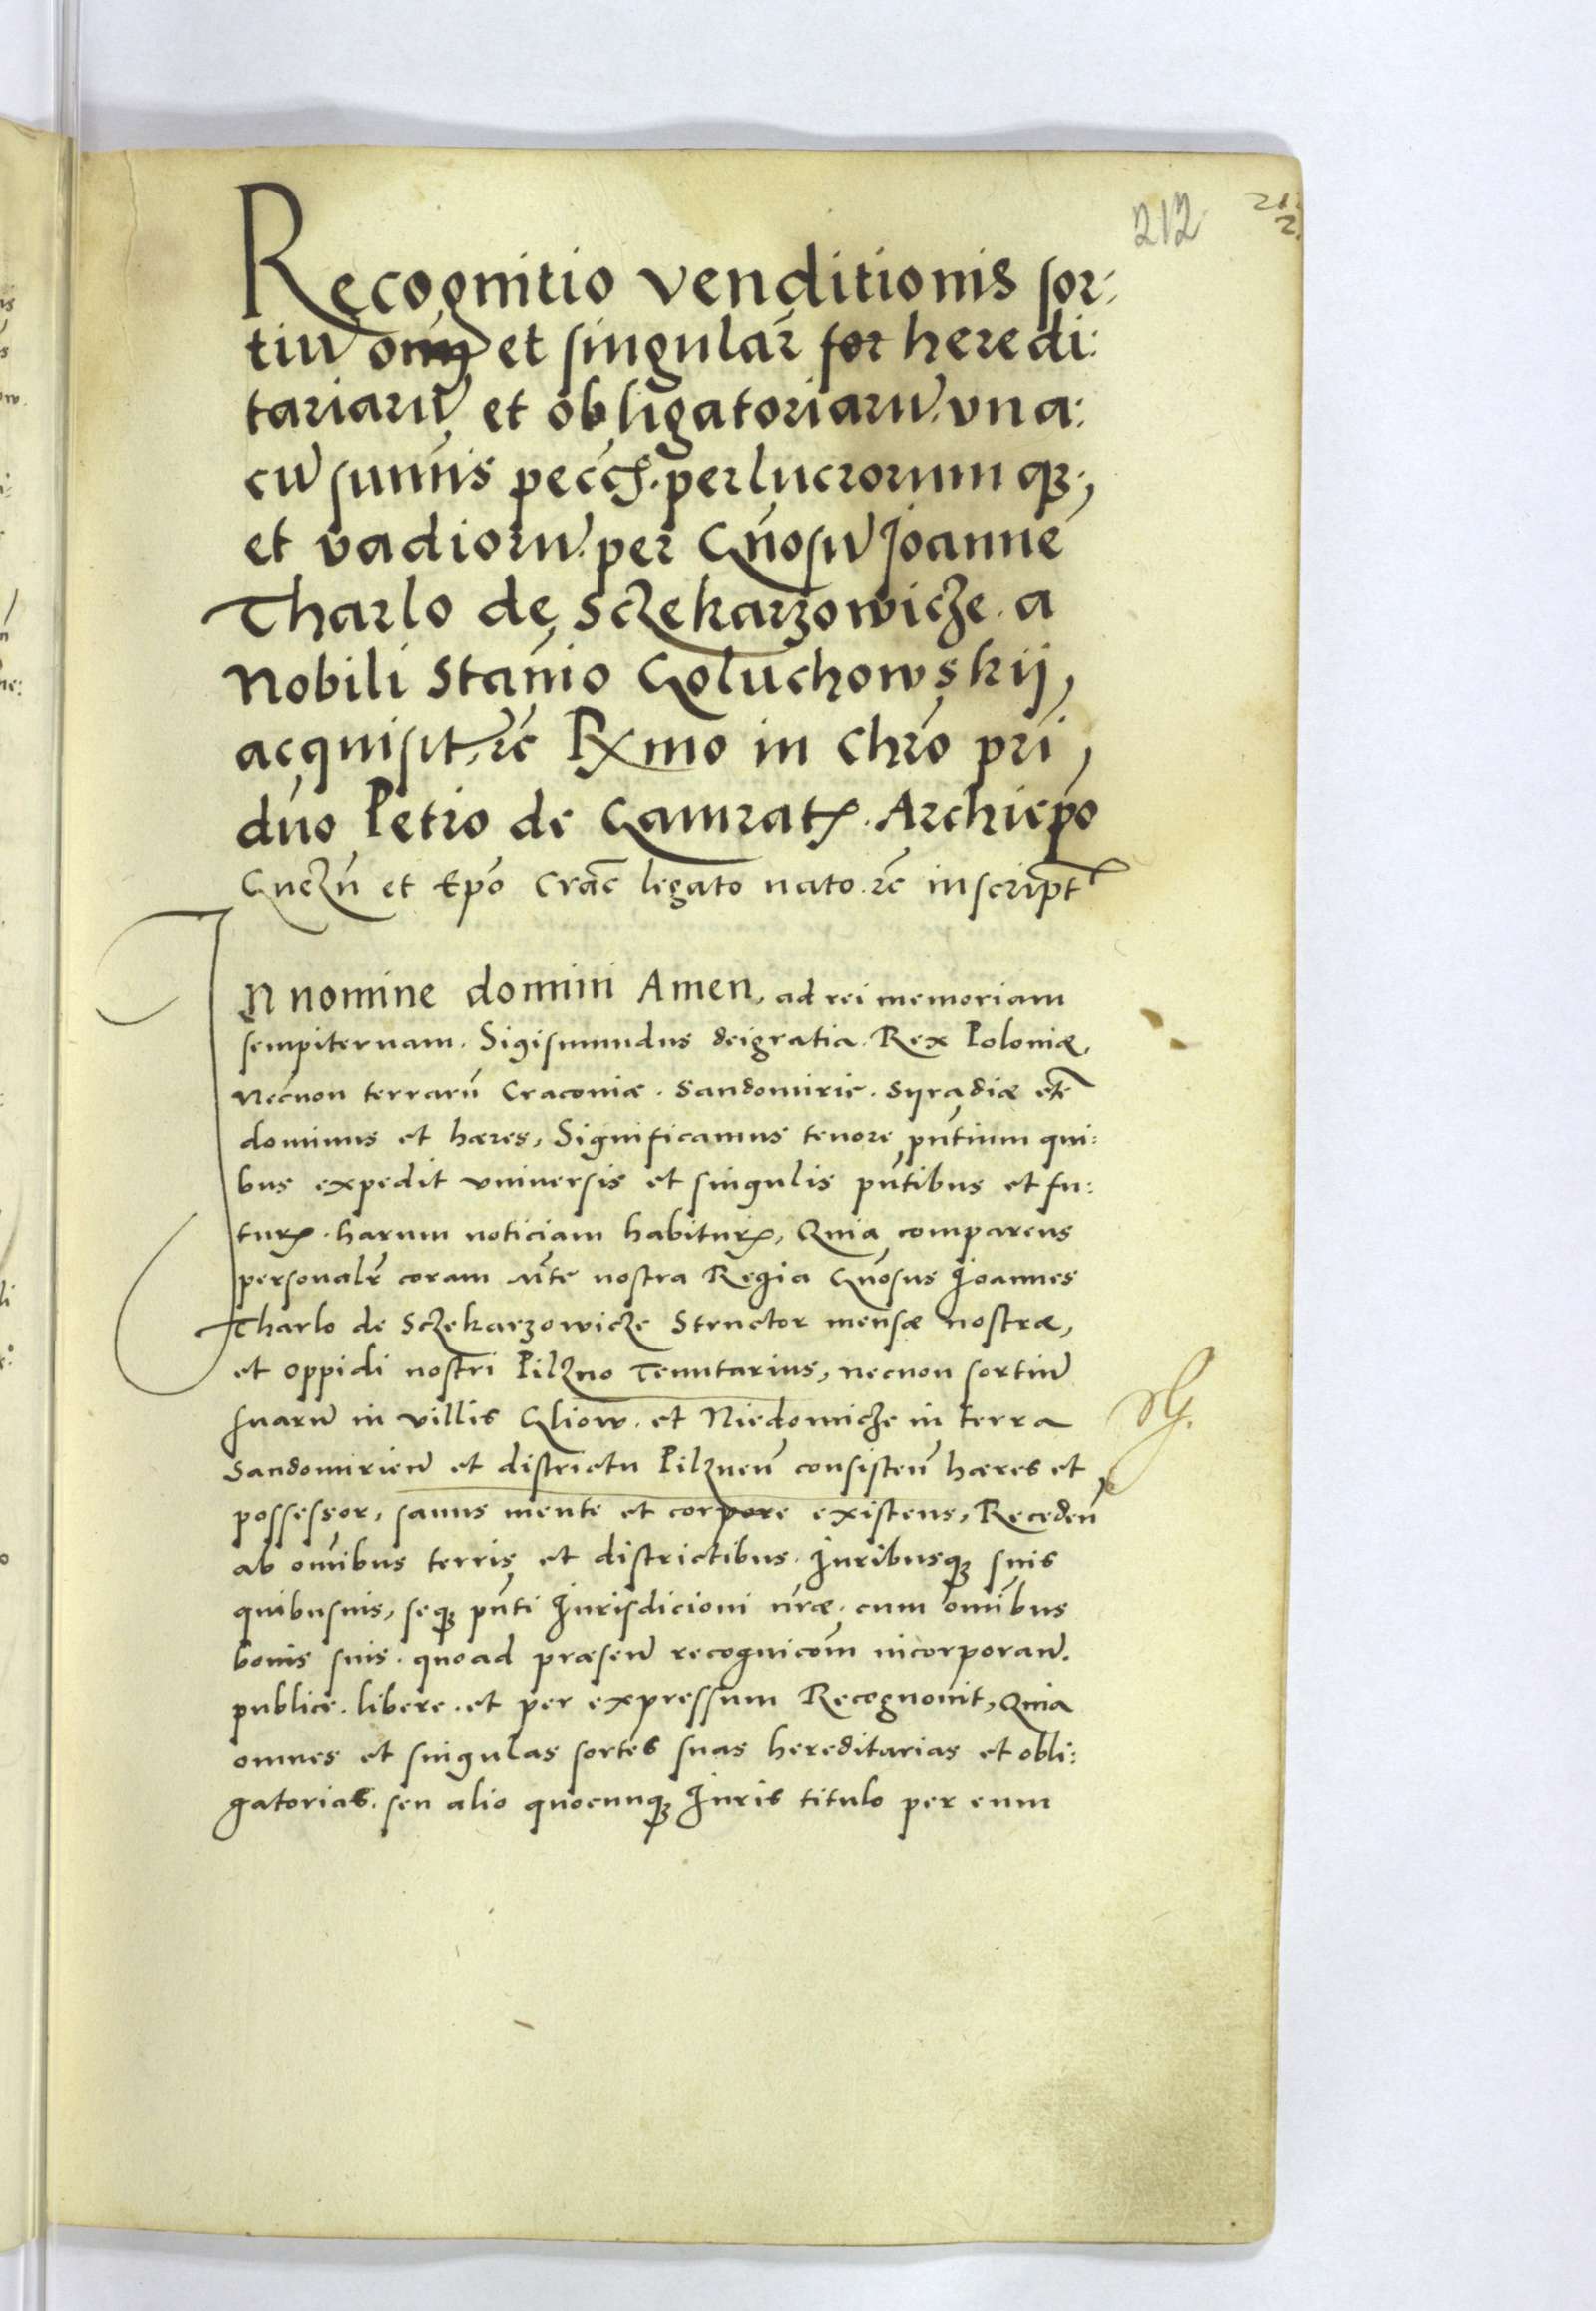 212
21
2
Recognitio venditionis sor:
tiū om̄ et singular̄ for heredi:
tariarū et obligatoriarū. vna:
cū sum̄is pecc̄. perlucrorum qꝫ,
et vadiorū. per Gn̄osū Joannē
Tharlo de Sczekarzowicze. a
Nobili Stan̄io Goluchowskij,
acquisit. rc̄ Rx̄mo in Chrō pri̇̄,
dn̄o Petro de Gamratꝭ. Archiep̄o
Gnezn̄ et Ep̄o Crac̄ legato nato. rc̄ inscript
IN nomine domini Amen, ad rei memoriam
sempiternam. Sigismundus deigratia. Rex Poloniæ,
Necnon terrarū Craconiæ. Sandomirie. Syradiæ etc̄
dominus et hæres, Significamus tenore pn̄tium qui:
bus expedit vniuersis et singulis pn̄tibus et fu:
turꝭ. harum noticiam habiturꝭ, Quia comparens
personalr̄ coram Mt̄e nostra Regia Gn̄osus Joannes
Tharlo de Sczekarzowicze Structor mensæ nostræ,
et oppidi nostri Pilzno Tenutarius, necnon sortiū
suarū in villis Gliow. et Niedomicze in terra
Sandomirien̄ et districtu Pilznen̄ consisten̄ hæres et
possessor, sanus mente et corpore existens, Receden̄
ab om̄ibus terris et districtibus. Juribusqꝫ suis
quibusuis, seqꝫ pn̄ti Jurisdicioni nr̄æ. cum om̄ibus
bonis suis. quoad præsen̄ recognicōm incorporan̄.
publice. libere. et per expressum Recognouit, Quia
omnes et singulas sortes suas hereditarias et obli:
gatorias. seu alio quocunqꝫ Juris titulo per eum